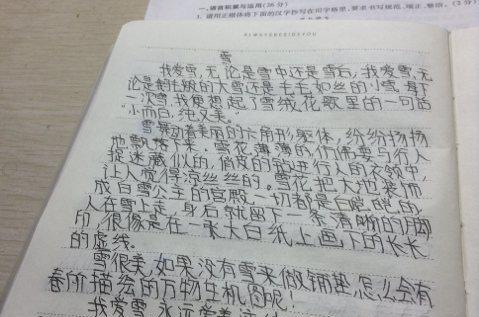 一、语言积累与运用(26分)
1. 请用正楷体将下面的汉字抄写在田字格里,要求书写规范、端正、整洁。(2分)
ALWAYS BESIDE YOU
雪
我爱雪,无论是雪中还是雪后,我爱雪,无
论是鹅毛般的大雪还是毛毛如丝的小雪。每下
一次雪,我便想起了雪绒花歌里的一句话
"小而白,纯又美。"
雪舞动着美丽的六角形躯体,纷纷扬扬
地飘落下来,雪花薄薄的,仿佛要与行人
捉迷藏似的,俏皮的钻进行人的衣领中,
让人觉得凉丝丝的。雪花把大地装饰
成白雪公主的宫殿,一切都是白皑皑的,
人在雪上走,身后就留下一条清晰的脚
印,很像是在一张大白纸上画下的长长
的虚线。
雪很美,如果没有雪来做铺垫,怎么会有
春价描绘的万物生机图呢!
我爱雪,永远